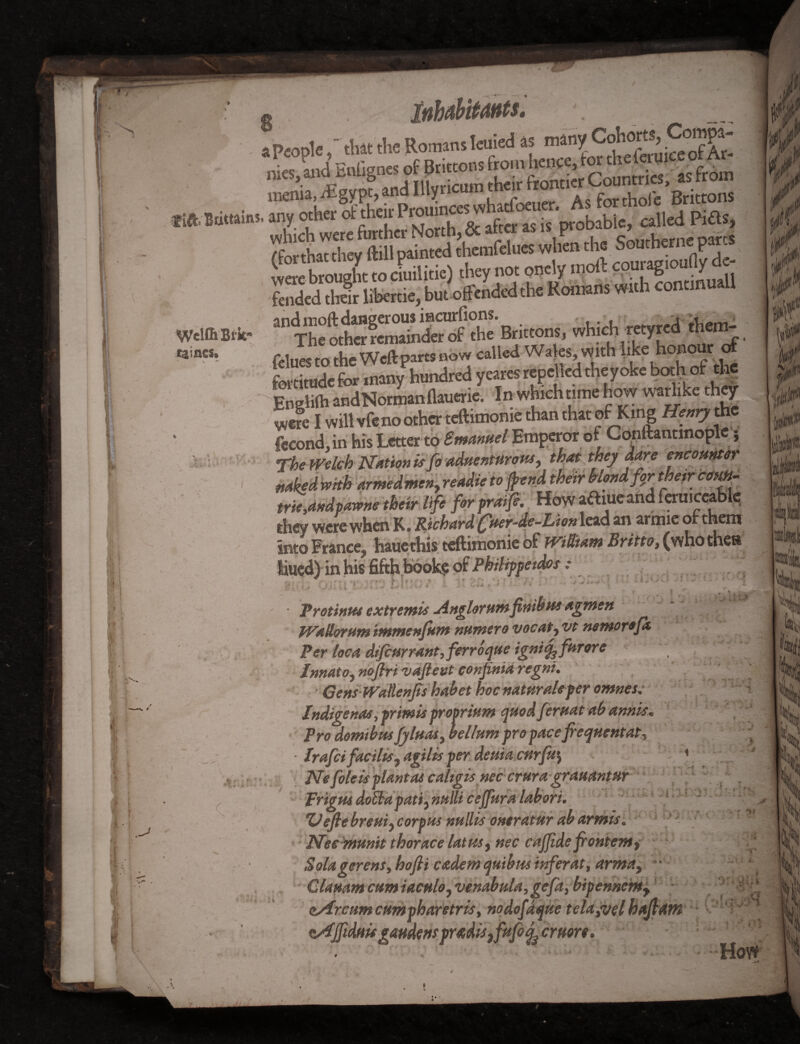 8
Inhabitants.
a People, that the Romans leuied as many Cohorts, Compa-
nies, and Ensignes of Brittons from hence, for the seruice of Ar-
menia, Ægypt, and Illyricum their frontier Countries, as from
Pict-Brittains.
any other of their Prouinces whatsoeuer. As for those Brittons
which were further North, & after as is probable, called Picts,
(for that they still painted themselues when the Southerne parts
were brought to ciuilitie) they not onely most couragiously de-
fended their libertie, but offended the Romans with continuall
and most dangerous incursions.
Welsh Brit-
taines.
The other remainder of the Brittons, which retyred them-
selues to the West parts now called Wales, with like honour of
fortitude for many hundred yeares repelled the yoke both of the
English and Norman slauerie. In which time how warlike they
were I will vse no other testimonie than that of King Henry the
second, in his Letter to Emanuel Emperor of Constantinople;
The Welch Nation is so aduenturous, that they dare encounter
naked with armed men, readie to spend their bloud for their coun-
trie, and pawne their life for praise. How actiue and seruiceable
they were when K. Richard Cuer-de-Lion lead an armie of them
into France, haue this testimonie of William Britto, (who then
liued) in his fifth booke of Philippeidos:
Protinus extremis Anglorum finibus agmen
Wallorum immensum numero vocat, vt nemorosa
Per loca discurrant, ferróque igniq; furore
Innato, nostri vastent confinia regni.
Gens Wallensis habet hoc naturale per omnes
Indigenas, primis proprium quod seruat ab annis.
Pro domibus syluas, bellum pro pace frequentat,
Irasci facilis, agilis per deuia cursu;
Ne soleis plantas caligis nec crura grauantur
Frigus docta pati, nulli cessura labori.
Veste breui, corpus nullis oneratur ab armis.
Nec munit thorace latus, nec casside frontem,
Sola gerens, hosti cædem quibus inferat, arma,
Clauam cum iaculo, venabula, gesa, bipennem,
Arcum cum pharetris, nodosáque tela, vel hastam
Assiduis gaudens prædis, fusoq; cruore.
How